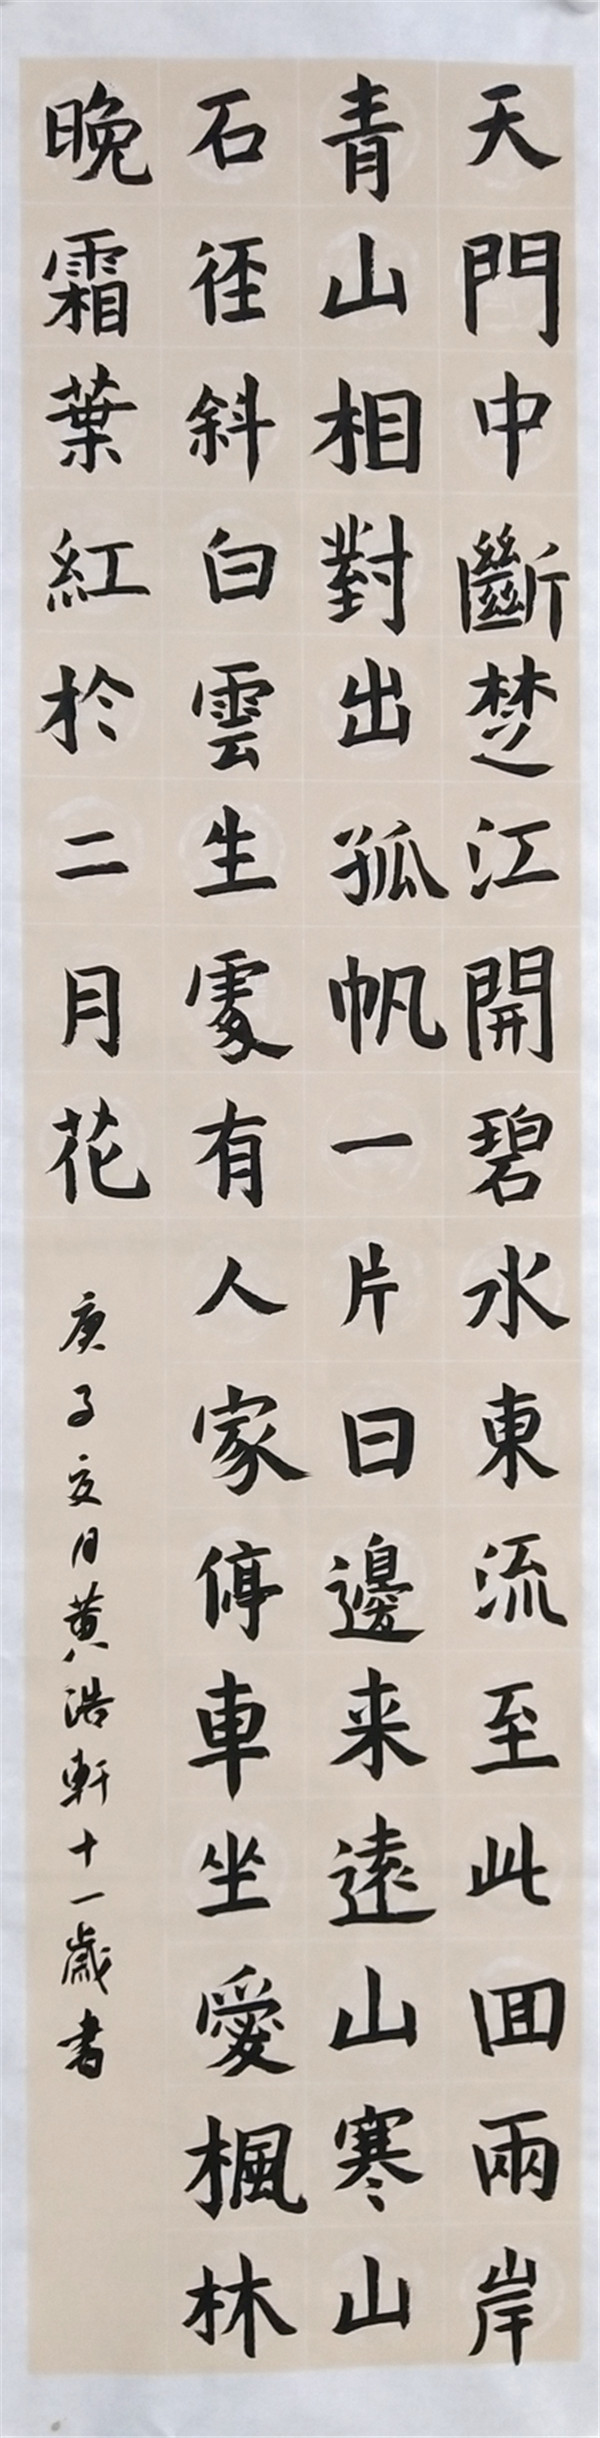 天門中斷楚江開碧水東流至此囬兩岸
青山相對出孤帆一片日邊来遠山寒山
石径斜白雲生處有人家停車坐愛楓林
晚霜葉紅於二月花
庚子夏月黄浩軒十一歲書